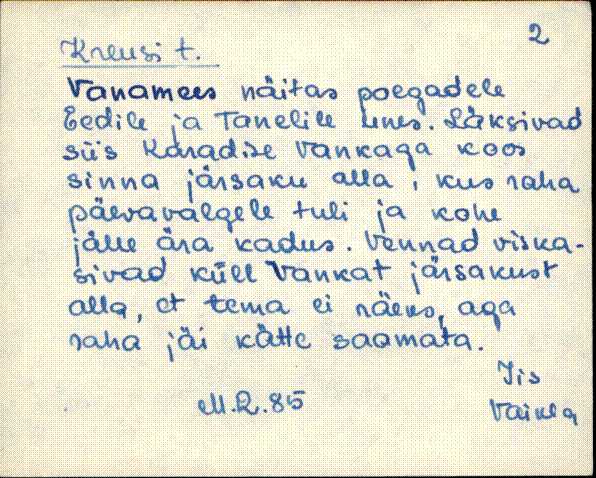 2
Kreusi t.
Vanamees näitas poegadele
Eedile ja Tanelile unes. Läksivad
siis Koradise Vankaga koos
sinna järsaku alla, kus raha
päevavalgele tuli ja kohe
jälle ära kadus. Vennad viska-
sivad küll Vankat järsakust
alla, et tema ei näeks, aga
raha jäi kätte saamata.
Iis
M.R.85
Vaikla